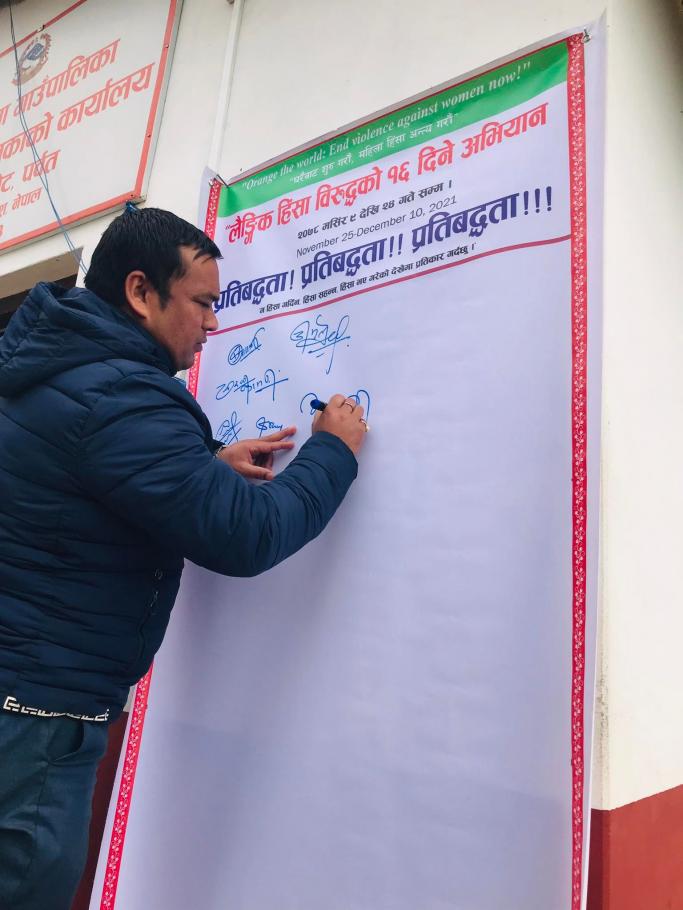 गाउँपालिका
कार्यपालिकाको कार्यालय
पर्वत
नेपाल
"Orange the world: End violence against women now!"
"घरैबाट शुरु गरौं, महिला हिंसा अन्त्य गरौं"
"लैङ्गिक हिंसा विरुद्धको १६ दिने अभियान
२०७८ मंसिर ९ देखि २४ गते सम्म ।
November 25-December 10, 2021
प्रतिबद्धता! प्रतिबद्धता!! प्रतिबद्धता!!!
न हिंसा गर्दिन, हिंसा सहन्न, हिंसा भए गरेको देखेमा प्रतिकार गर्दछु ।